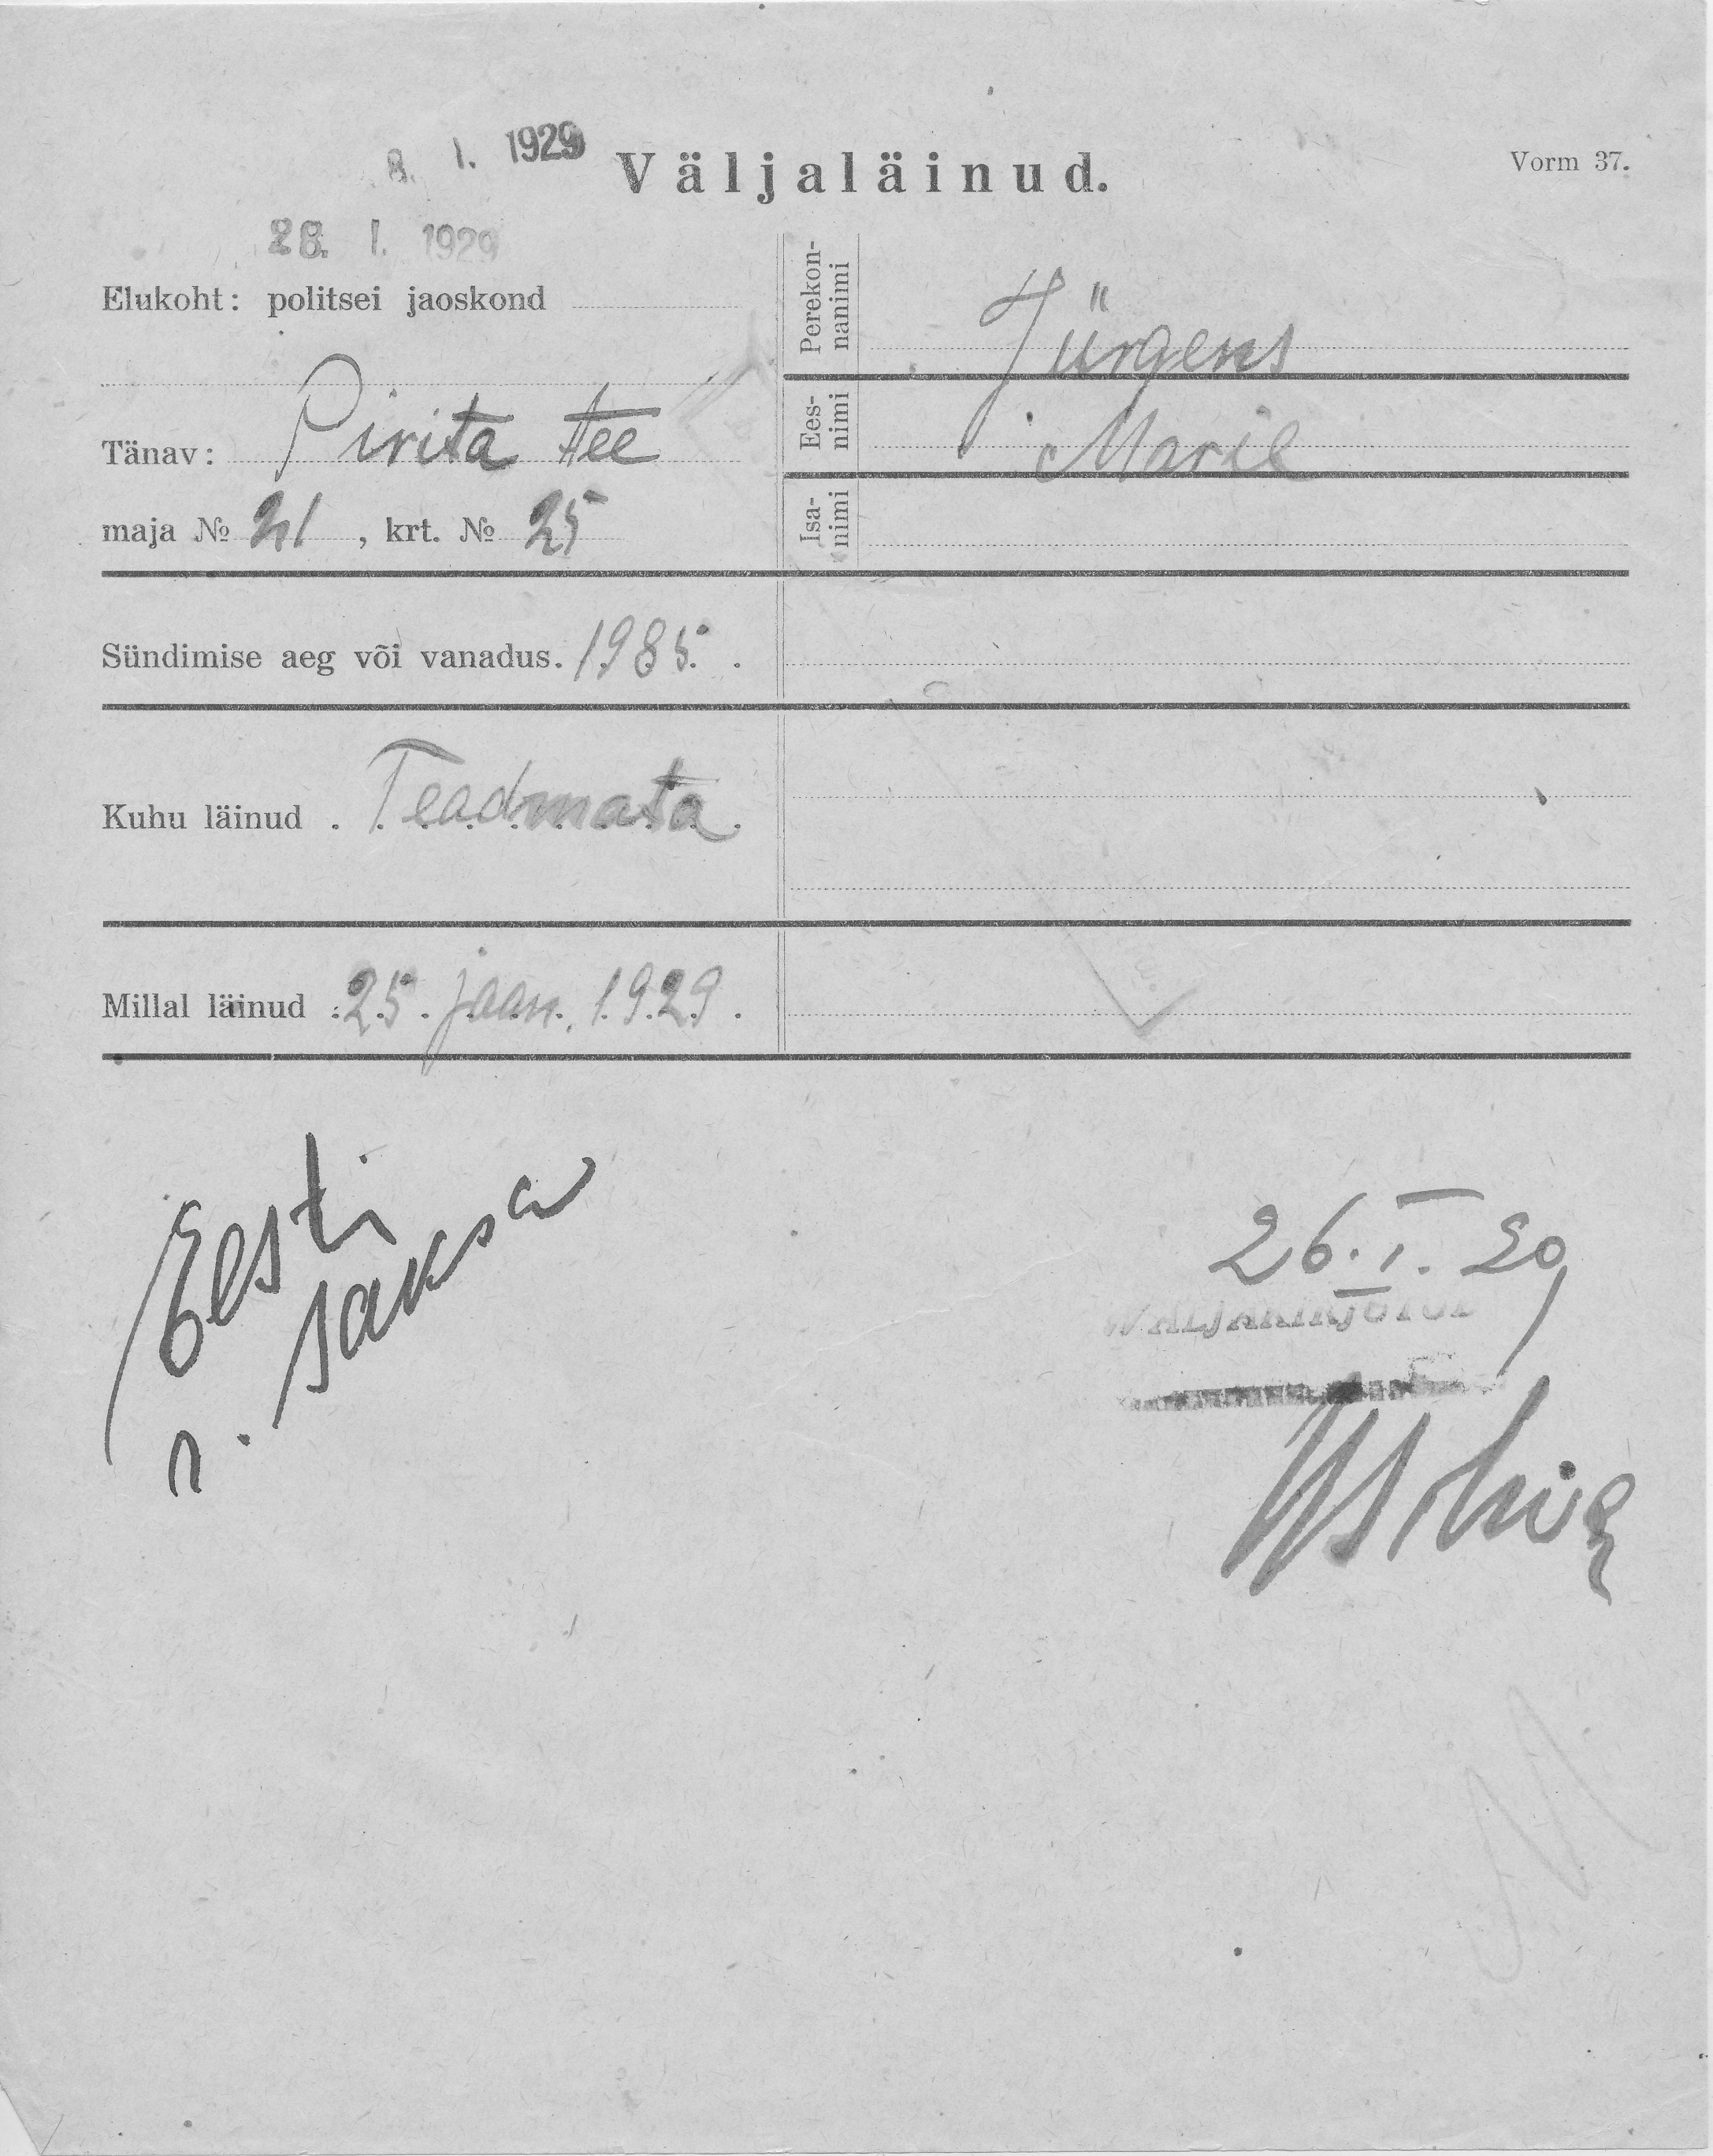 8. I. 1929
Väljaläinud.
Vorm 37.
28. I. 1929
Elukoht: politsei jaoskond
Perekonnanimi
Jürgens
Tänav: Pirita tee
Eesnimi
Marie
maja № 21, krt. № 25
Isanimi
Sündimise aeg või vanadus. 1985.
Kuhu läinud . Teadmata.
Millal läinud . 25. jaan. 1929.
Eesti
r. saksa
26. I. 29